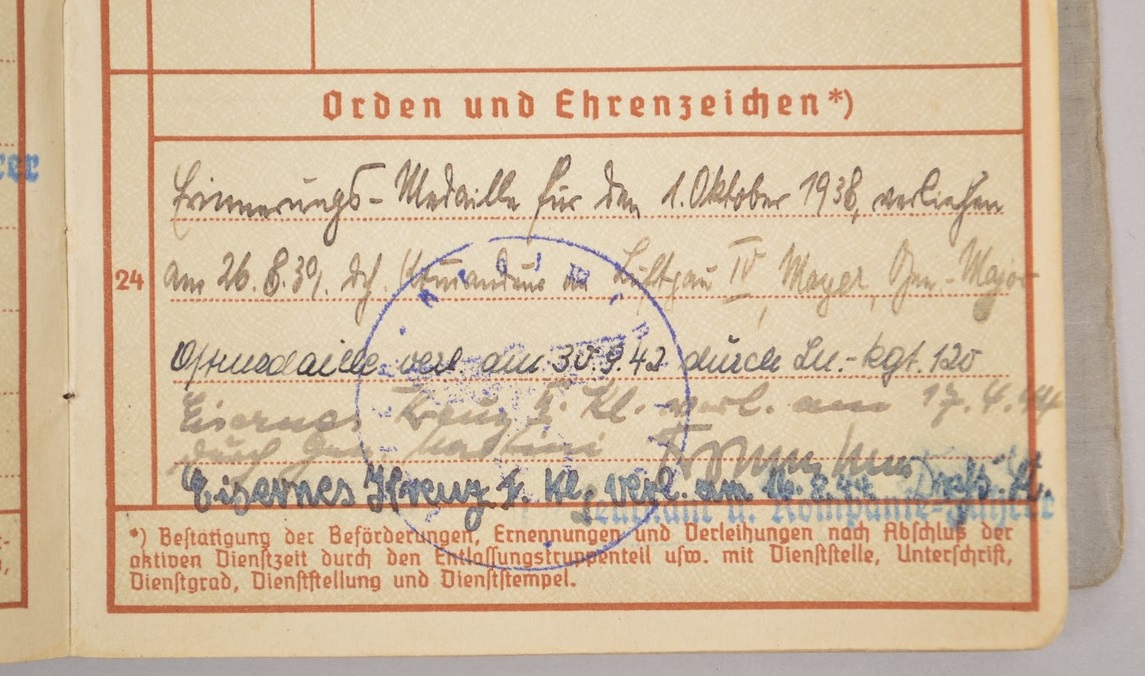 rer
Orden und Ehrenzeichen*)
Erinnerungs-Medaille für den 1. Oktober 1938, verliehen
24
am 26.8.39. dch. Luftgau IV, Mayer, Gen.-Major
Ostmedaille verl. am 30.9.42 durch Ln.-Rgt. 120
Eisernes Kreuz II. Kl. verl. am 17.4.44
durch Gen. Martini
Eisernes Kreuz I. Kl. verl. am 16.8.44
Leutnant u. Kompanie-Führer
*) Bestätigung der Beförderungen, Ernennungen und Verleihungen nach Abschluß der
aktiven Dienstzeit durch den Entlassungstruppenteil usw. mit Dienststelle, Unterschrift,
Dienstgrad, Dienststellung und Dienststempel.